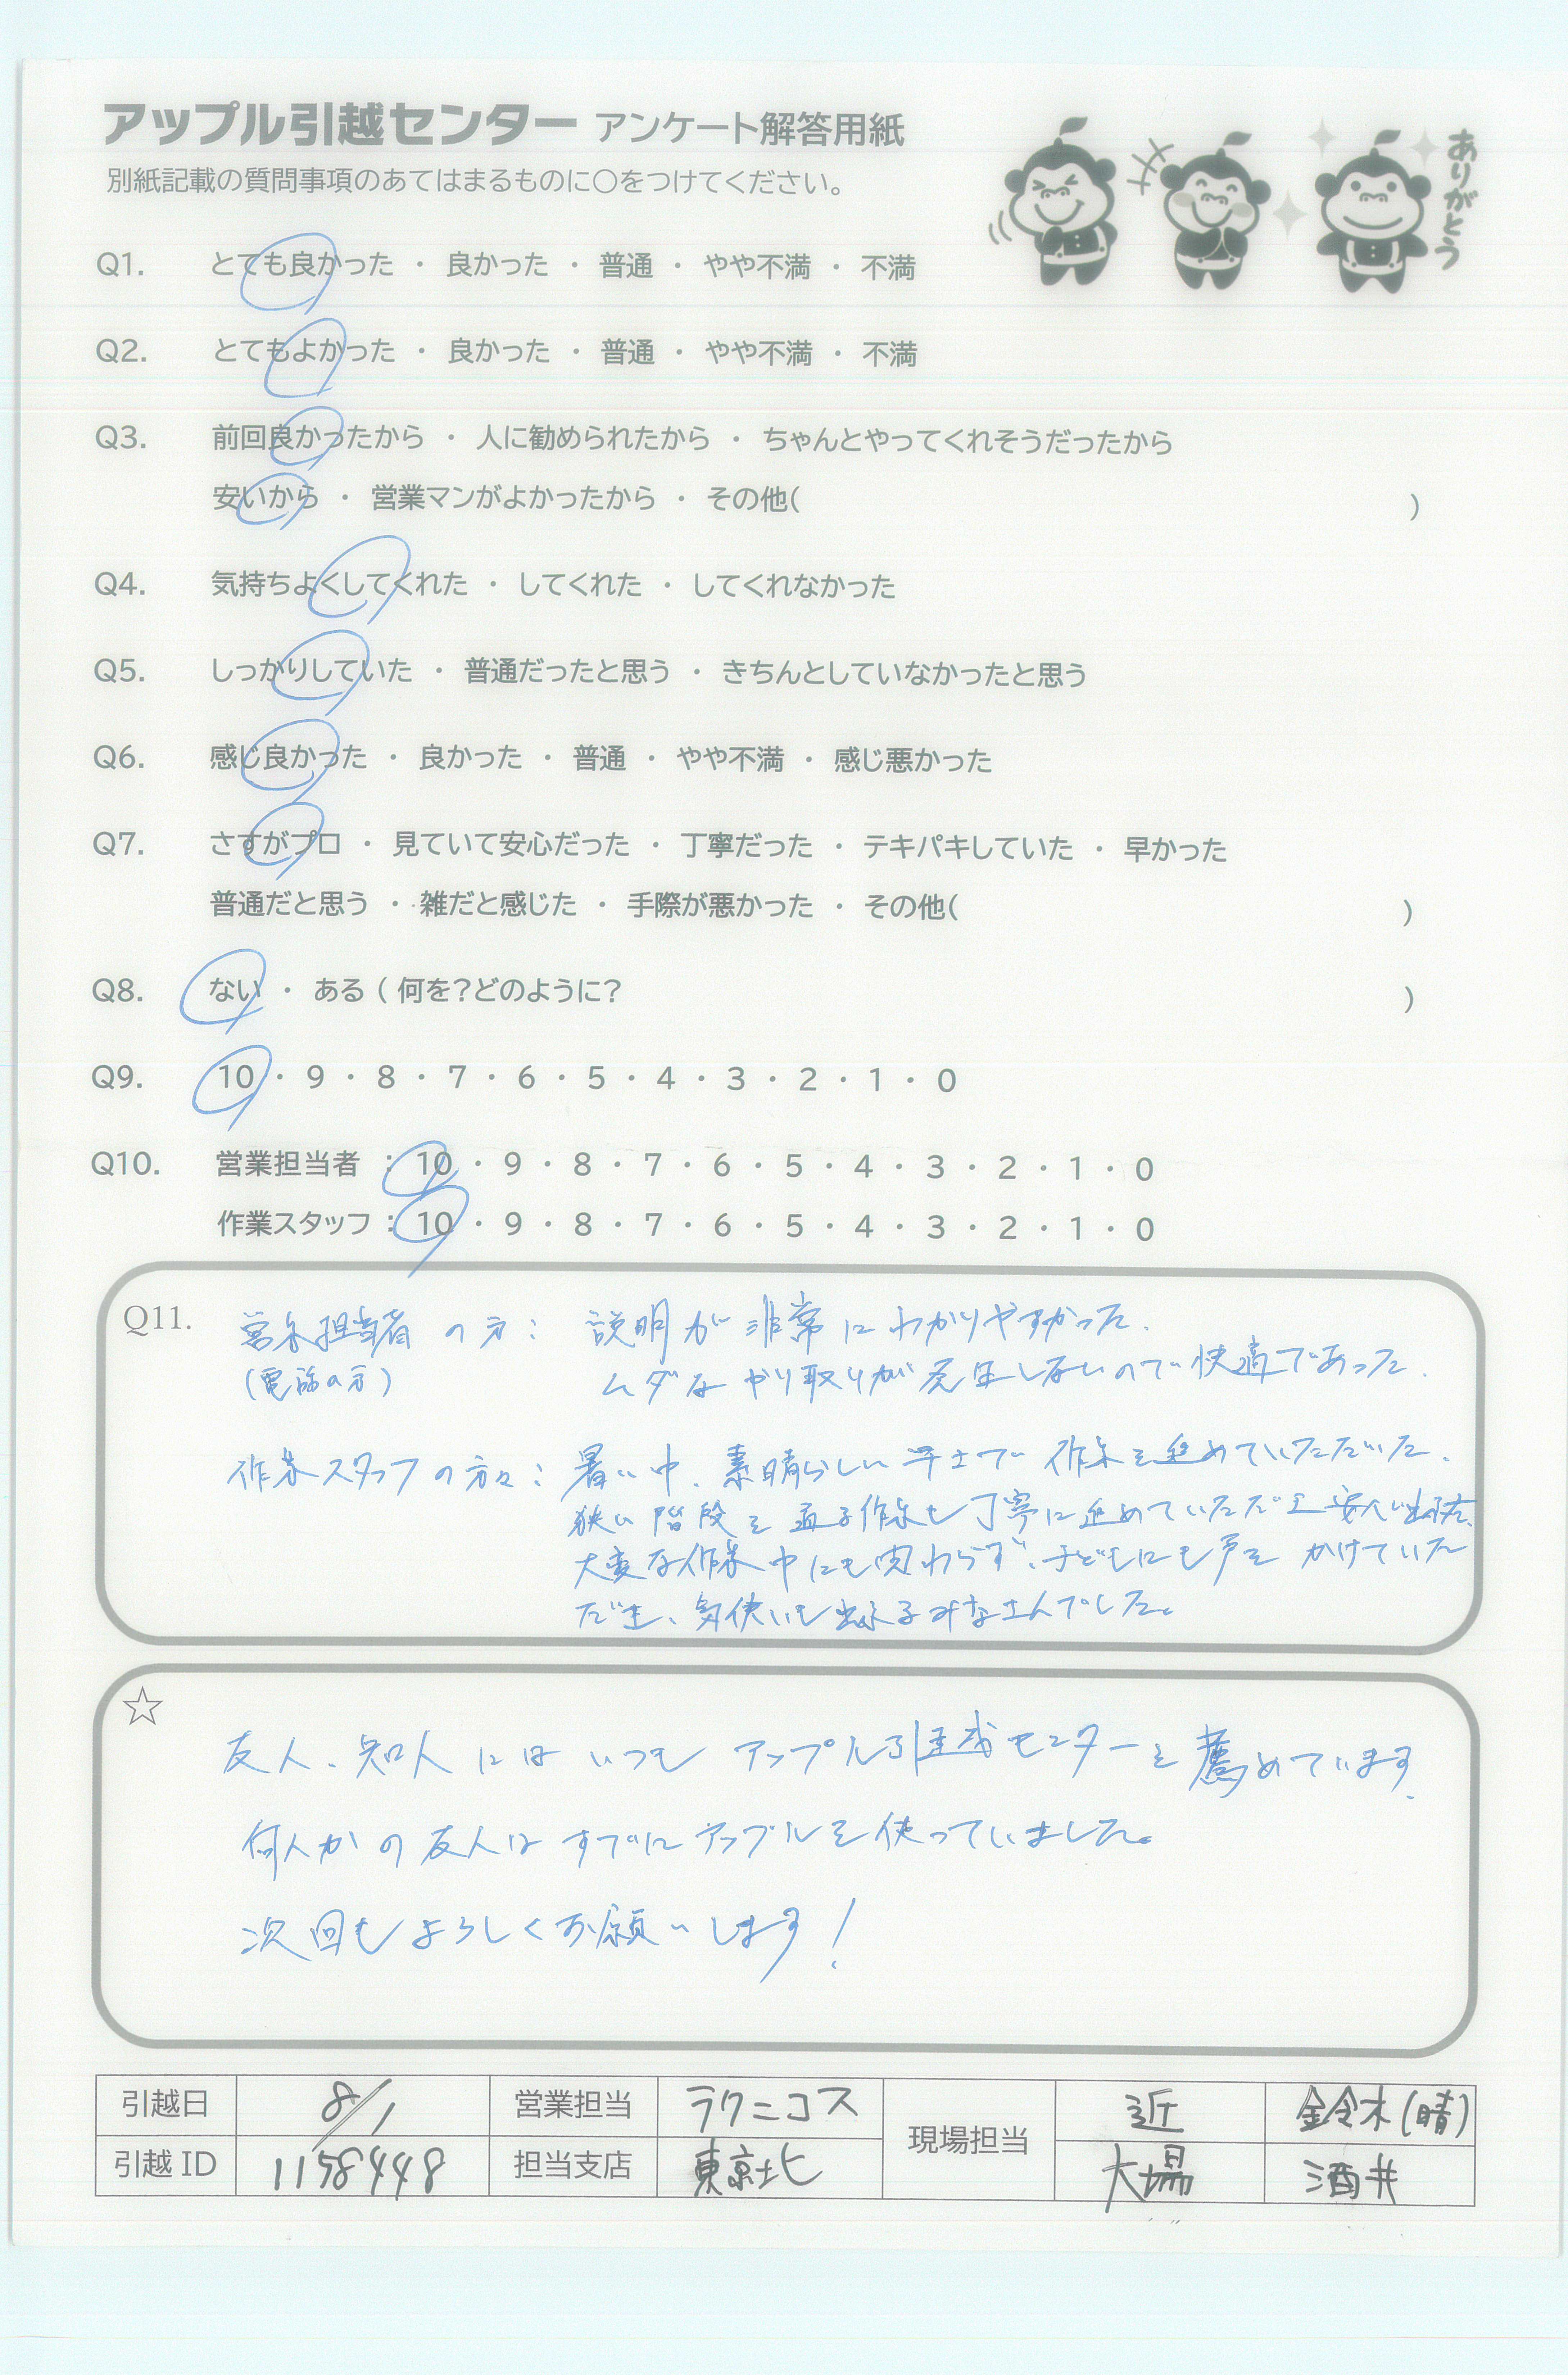 アップル引越センター アンケート解答用紙
ありがとう
別紙記載の質問事項のあてはまるものに○をつけてください。
Q1. とても良かった ・ 良かった ・ 普通 ・ やや不満 ・ 不満
Q2. とてもよかった ・ 良かった ・ 普通 ・ やや不満 ・ 不満
Q3. 前回良かったから ・ 人に勧められたから ・ ちゃんとやってくれそうだったから
安いから ・ 営業マンがよかったから ・ その他( )
Q4. 気持ちよくしてくれた ・ してくれた ・ してくれなかった
Q5. しっかりしていた ・ 普通だったと思う ・ きちんとしていなかったと思う
Q6. 感じ良かった ・ 良かった ・ 普通 ・ やや不満 ・ 感じ悪かった
Q7. さすがプロ ・ 見ていて安心だった ・ 丁寧だった ・ テキパキしていた ・ 早かった
普通だと思う ・ 雑だと感じた ・ 手際が悪かった ・ その他( )
Q8. ない ・ ある ( 何を?どのように? )
Q9. 10 ・ 9 ・ 8 ・ 7 ・ 6 ・ 5 ・ 4 ・ 3 ・ 2 ・ 1 ・ 0
Q10. 営業担当者 : 10 ・ 9 ・ 8 ・ 7 ・ 6 ・ 5 ・ 4 ・ 3 ・ 2 ・ 1 ・ 0
作業スタッフ : 10 ・ 9 ・ 8 ・ 7 ・ 6 ・ 5 ・ 4 ・ 3 ・ 2 ・ 1 ・ 0
Q11. 営業担当者の方: 説明が非常にわかりやすかった.
(電話の方) ムダなやり取りが発生しないので快適であった.
作業スタッフの方々: 暑い中、素晴らしい 作業を進めていただいた.
狭い階段を通る作業も丁寧に進めていただき安心出来た.
大変な作業中にも関わらず、子どもにも声をかけていた
だき、気使いも出来るみなさんでした。
☆
友人、知人にはいつもアップル引越センターを薦めています.
何人かの友人はすでにアップルを使っていました。
次回もよろしくお願いします!
引越日 8/1 営業担当 ラクニコス 現場担当 近 鈴木(晴)
引越ID 1158448 担当支店 東京北 大場 酒井